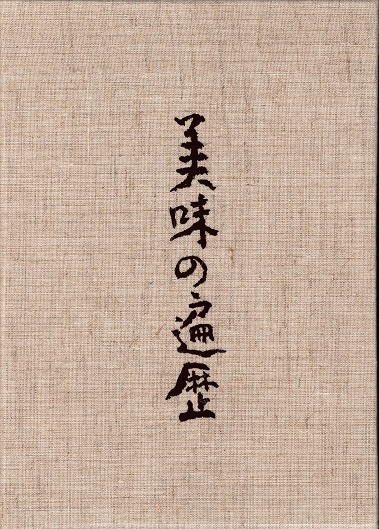 美味の遍歴